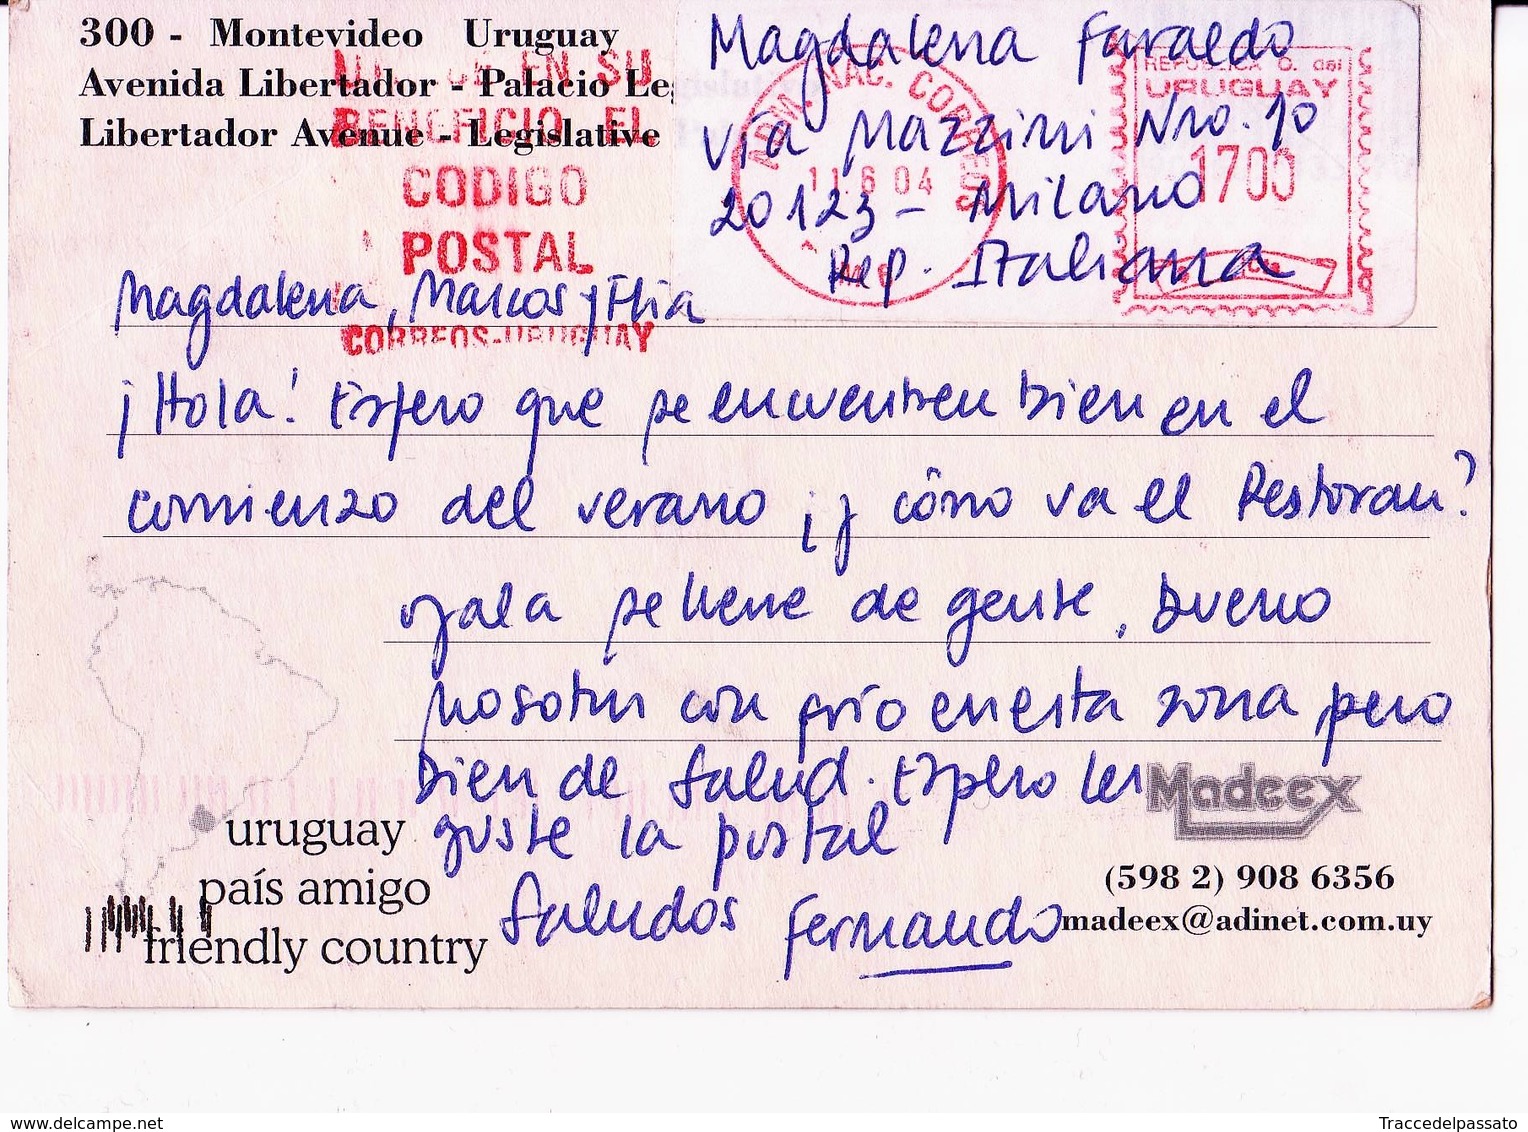 300 - Montevideo Uruguay
Avenida Libertador - Palacio Le
Libertador Avenue - Legislative
EN SU
BENEFICIO EL
CODIGO
POSTAL
CORREOS-URUGUAY
Magdalena Faraldo
Vía Mazzini Nro. 10
20123 - Milano
Rep. Italiana
ADM. NAC. CORREOS
11.6 04
REPUBLICA O. del
URUGUAY
1700
Magdalena, Marcos y Flia
¡Hola! Espero que se encuentren bien en el
comienzo del verano ¡y cómo va el Restoran?
ojala se llene de gente, bueno
nosotros con frío en esta zona pero
bien de salud. Espero les
guste la postal
Saludos Fernando
uruguay
país amigo
friendly country
Madeex
(598 2) 908 6356
madeex@adinet.com.uy
www.delcampe.net
Traccedelpassato